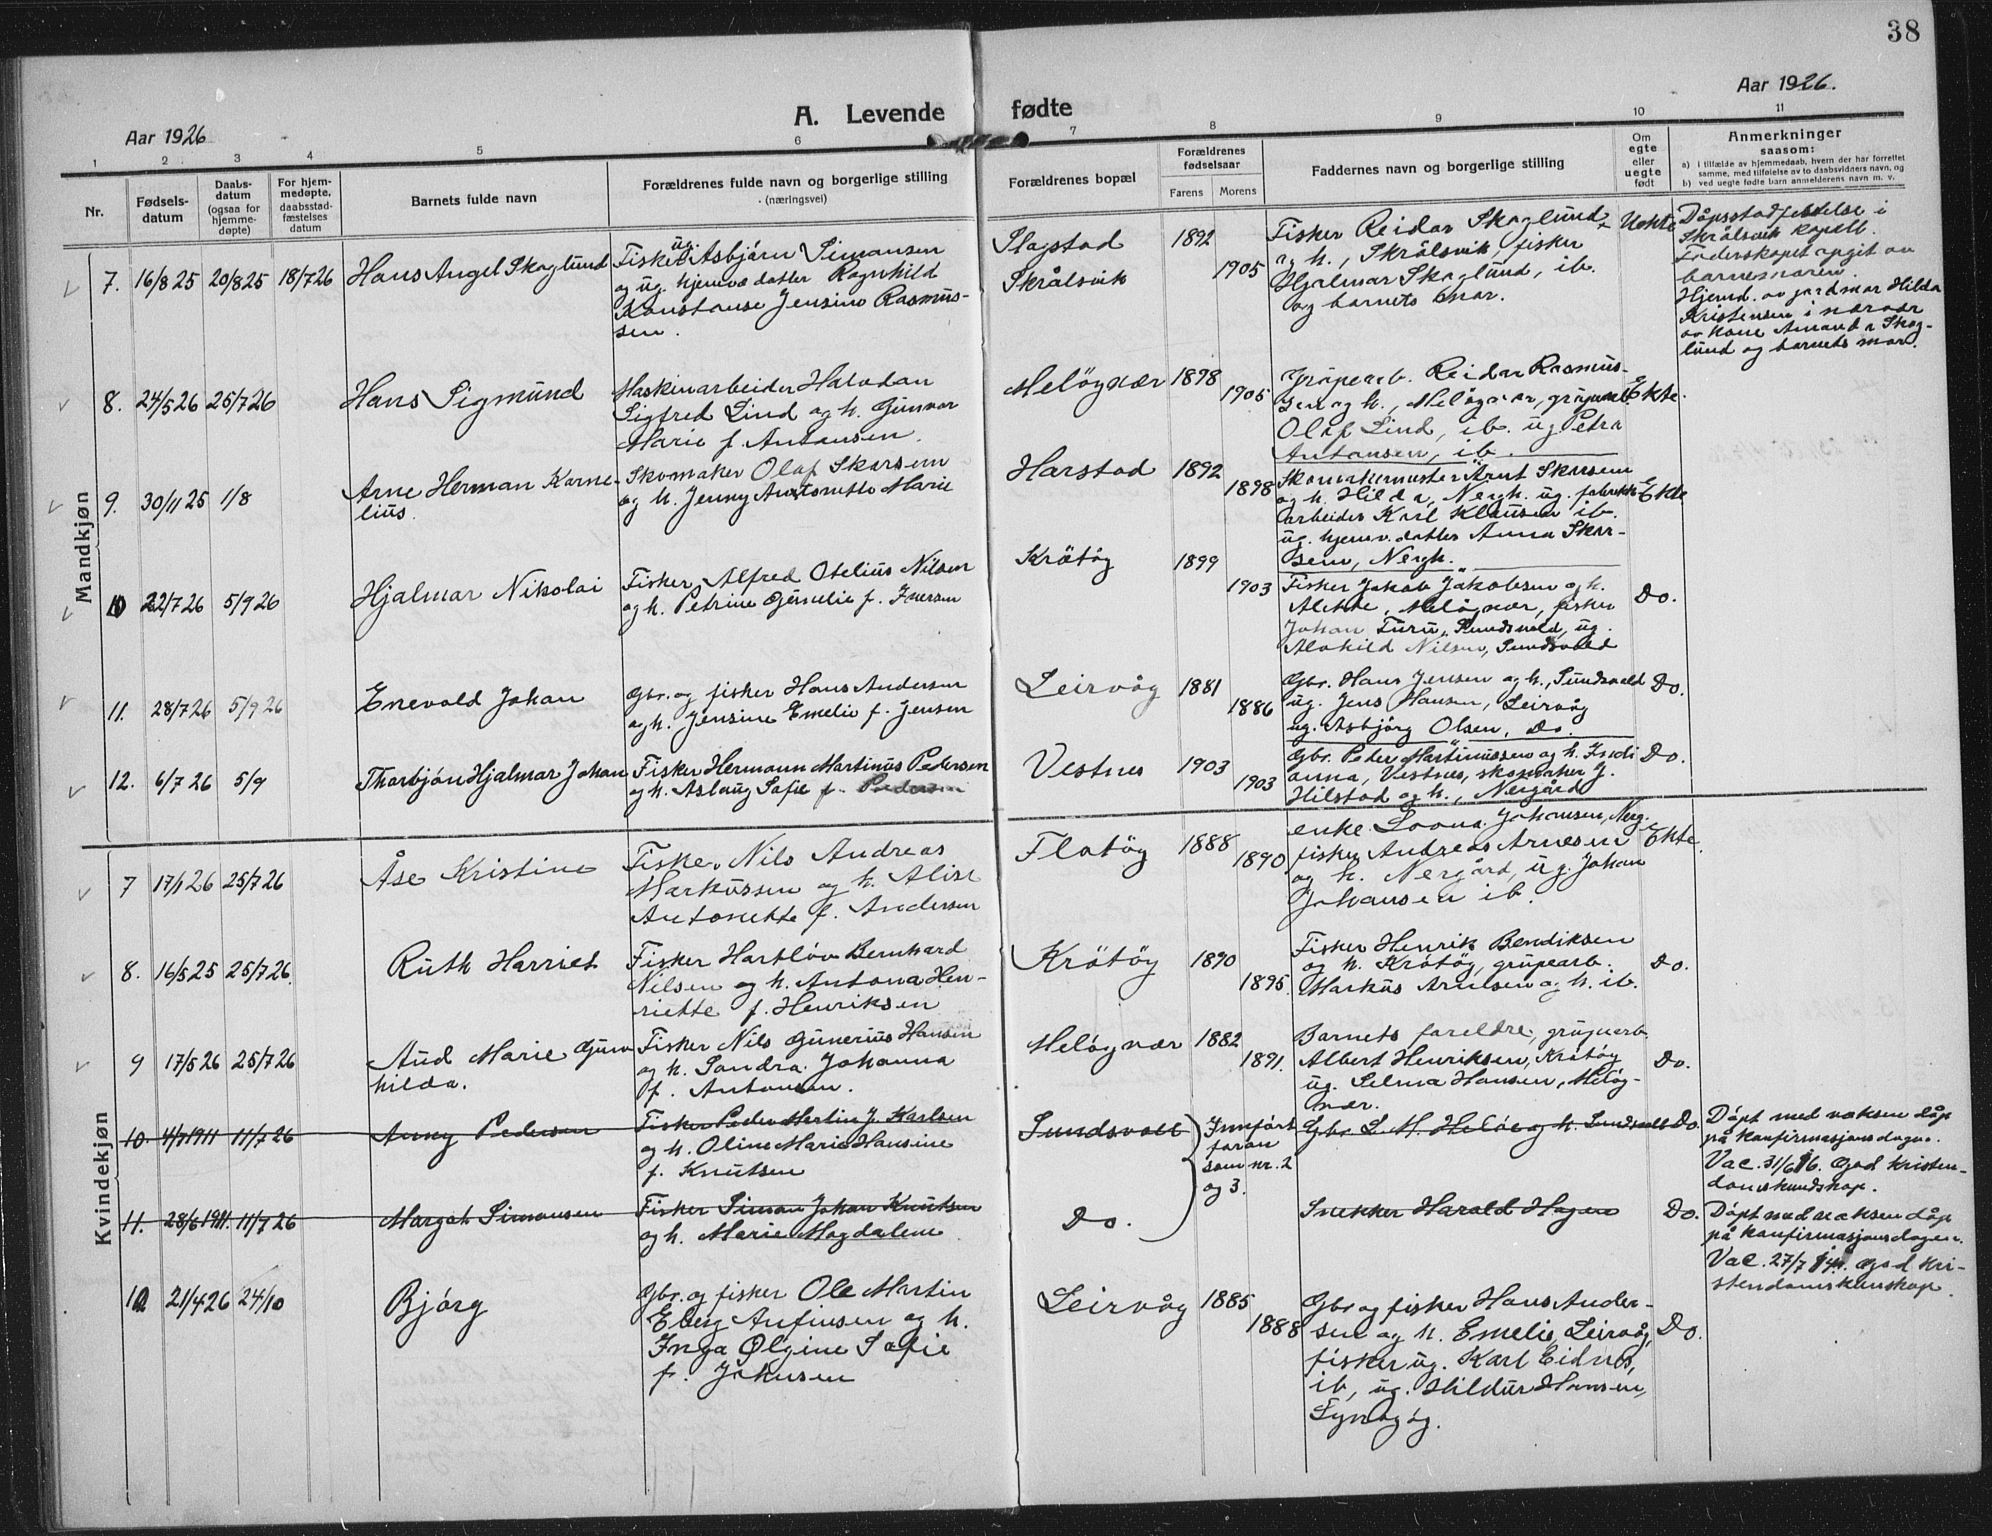 38
Aar 1926
A. Levende fødte
Aar 1926.
1 2 3 4 5 6 7 8 9 10 11
Nr.
Fødsels-
datum
Daabs-
datum
(ogsaa for
hjemme-
døpte)
For hjem-
medøpte,
daabsstad-
fæstelses
datum
Barnets fulde navn
Forældrenes fulde navn og borgerlige stilling
(næringsvei)
Forældrenes bopæl
Forældrenes
fødselsaar
Farens Morens
Faddernes navn og borgerlige stilling
Om
egte
eller
uegte
født
Anmerkninger
saasom:
a) i tilfælde av hjemmedaab, hvem der har forrettet
samme, med tilføielse av to daabsvidners navn, og
b) ved uegte fødte barn anmelderens navn m. v.
Mandkjøn
7. 16/8 25 20/8 25 18/7 26
Hans Angel Skoglund
Fisker ug. Asbjørn Simonsen
og ug. hjemv. datter Ragnhild
Konstanse Jensine Rasmus-
sen.
Slagstad
Skrålsvik
1892
1905
Fisker Reidar Skoglund
og h., Skrålsvik, fisker
Hjalmar Skoglund, ib.
og barnets mor.
Uekte
Dåpsstadfestelse i
Skrålsvik kapell.
Faderskapet opgit av
barnemoren.
Hjemd. av jordmor Hilda
Kristensen i nærvær
av kone Amanda Skog-
lund og barnets mor.
8. 24/5 26 25/7 26
Hans Sigmund
Maskinarbeider Halvdan
Sigfred Lind og h. Gunvor
Marie f. Antonsen.
Meløyvær
1898
1905
Grubearb. Reidar Rasmus-
sen og h., Meløyvær,
Olaf Lind, ib. ug. Petra
Antonsen, ib.
Ekte.
9. 30/11 25 1/8
Arne Herman Korne-
lius.
Skomaker Olaf Skarsem
og h. Jenny Antonette Marie
Harstad
1892
1898
Skomakermester Arnt Skarsem
og h. Hilda, Nergh. ug. fabrikk
arbeider Karl Klausen ib.
ug. hjemv. datter Anna Skar-
sem, Nergh.
Ekte
10 22/7 26 5/9 26
Hjalmar Nikolai
Fisker Alfred Otelius Nilsen
og h. Petrine Cornelie f. Iversen
Krøtøy
1899
1903
Fisker Jakob Jakobsen og h.
Alette, Meløyvær, fisker
Johan Turu, Sundsvold, ug.
Alvhild Nilsen, Sundsvold
Do.
11. 28/7 26 5/9 26
Enevald Johan
Gbr. og fisker Hans Andersen
og h. Jensine Emelie f. Jensen
Leirvåg
1881
1886
Gbr. Hans Jensen og h., Sundsvold
ug. Jens Hansen, Leirvåg
ug. Asbjørg Olsen, Do.
Do.
12. 6/7 26 5/9
Thorbjørn Hjalmar Johan
Fisker Hermann Martinus Pedersen
og h. Aslaug Sofie f. Pedersen
Vestnes
1903
1903
Gbr. Peder Martinussen og h.
anna, Vestnes, skomaker J.
Hilstad og h., Nergård
Do.
Kvindekjøn
7 17/1 26 25/7 26
Åse Kristine
Fisker Nils Andreas
Markussen og h. Alise
Antonette f. Andersen
Flatøy
1888
1890
enke Lovna Johansen, Nerg.
fisker Andreas Arnesen
og h. Nergård, ug. Johan
Johansen ib.
Ekte.
8. 16/5 25 25/7 26.
Ruth Harriet
Fisker Hartløv Bernhard
Nilsen og h. Antona Hen-
riette f. Henriksen
Krøtøy
1890
1895.
Fisker Henrik Bendiksen
og h. Krøtøy, grubearb.
Markus Arntsen og h. ib.
Do.
9 17/5 26 25/7 26
Aud Marie Gun-
hilda.
Fisker Nils Gunerius Hansen
og h. Sandra Johanna
f. Antonsen.
Meløyvær
1882
1891.
Barnets foreldre, grubearb.
Albert Henriksen, Krøtøy
ug. Selma Hansen, Meløy-
vær.
Do.
10. 4/7 1911 11/7 26
Anny Pedersen
Fisker Peder Martin J. Karlsen
og h. Oline Marie Hansine
f. Knutsen
Sundsvoll
Innført
foran
som nr. 2
og 3.
Gbr. L. M. Heløe og h. Sundsvoll
Do.
Døpt med voksen dåp
på konfirmasjonsdagen.
Vac. 31/6 16. God kristen-
domskundskap.
11. 28/6 1911. 11/7 26
Margot Simonsen
Fisker Simon Johan Knutsen
og h. Marie Magdalene
Do.
Snekker Harald Hagen
Do.
Døpt med voksen dåp
på konfirmasjonsdagen.
Vac. 27/7 14. God kri-
stendomskunskap.
10 21/4 26 24/10
Bjørg
Gbr. og fisker Ole Martin
Eberg Anfinsen og h.
Inga Olgine Sofie
f. Johnsen
Leirvåg
1885
1888
Gbr og fisker Hans Ander-
sen og h. Emelie, Leirvåg,
fisker ug. Karl Eidnes,
ib, ug. Hildur Hansen,
Lynøy.
Do.